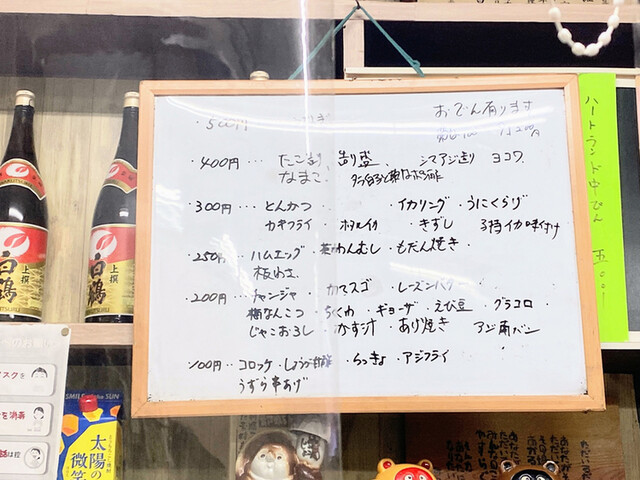 ・500円
おでん有ります
・400円… たこ 造り盛 シマアジ造り ヨコワ
なまこ
・300円… とんかつ ・イカリング ・うにくらげ
カキフライ ホタルイカ ・きずし 子持イカ味付け
・250円… ハムエッグ 茶わんむし ・もだん焼き
板わさ
・200円… チャンジャ ・カマスゴ ・レーズンバター
梅なんこつ ・ちくわ ・ギョーザ ・えび豆 ・グラコロ
・じゃこおろし ・かす汁 ・あげ焼き アジ南バン
・100円… コロッケ ・しょうが天 ・らっきょ ・アジフライ
うずら串あげ
ハートランド中びん 五〇〇
上撰
白鶴
上撰
白鶴
SUN
太陽の
微笑